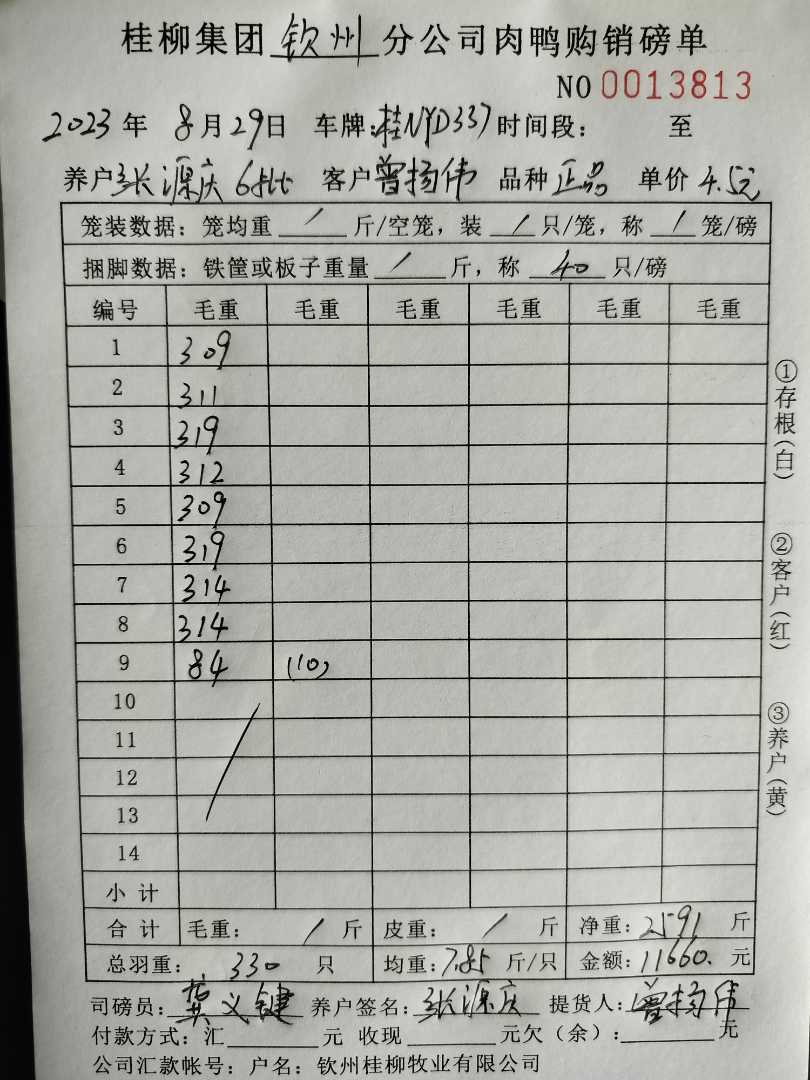 桂柳集团钦州分公司肉鸭购销磅单
NO 0013813
2023年 8月29日 车牌:桂NYD337 时间段: 至
养户 张源庆 6批 客户 曾扬伟 品种 正品 单价 4.5元
笼装数据: 笼均重 / 斤/空笼, 装 / 只/笼, 称 / 笼/磅
捆脚数据: 铁筐或板子重量 / 斤, 称 40 只/磅
编号 毛重 毛重 毛重 毛重 毛重 毛重
1 309
2 311
3 319
4 312
5 309
6 319
7 314
8 314
9 84 (10)
10
11
12
13
14
小计
合计 毛重: / 斤 皮重: / 斤 净重: 2591 斤
总羽重: 330 只 均重: 7.85 斤/只 金额: 11660. 元
司磅员: 龚义键 养户签名: 张源庆 提货人: 曾扬伟
付款方式: 汇 元 收现 元欠(余): 元
公司汇款帐号: 户名: 钦州桂柳牧业有限公司
①存根(白)
②客户(红)
③养户(黄)